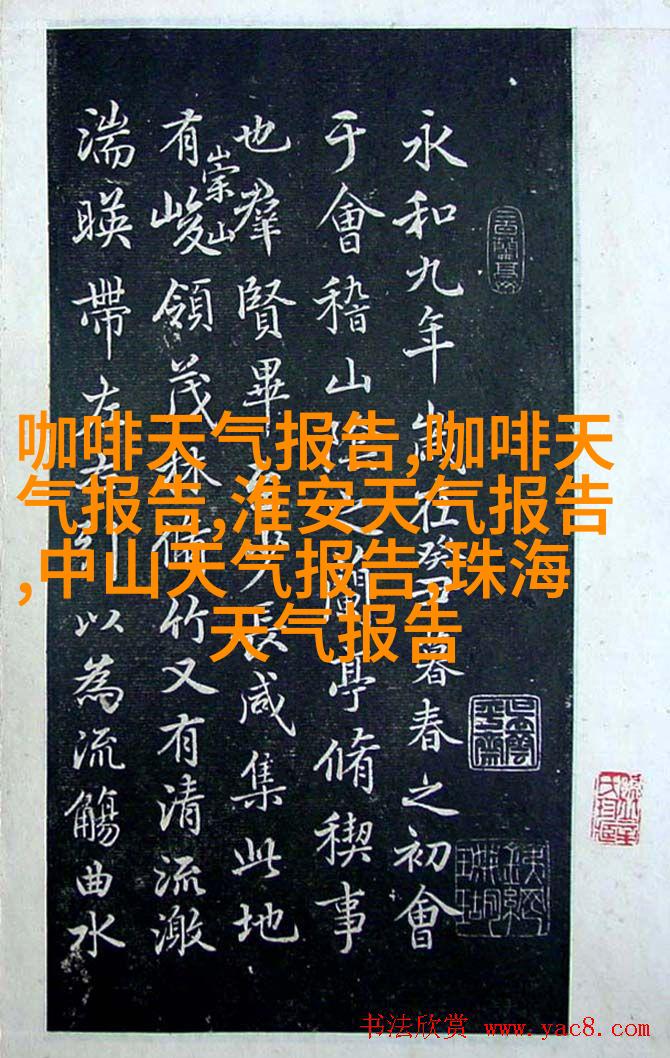 永和九年歲在癸丑暮春之初會
于會稽山陰之蘭亭脩稧事
也羣賢畢至少長咸集此地
有崇山峻領茂林脩竹又有清流激
湍暎帶左右引以為流觴曲水
咖啡天气报告,咖啡天
气报告,淮安天气报告
,中山天气报告,珠海
天气报告
书法欣赏 www.yac8.com